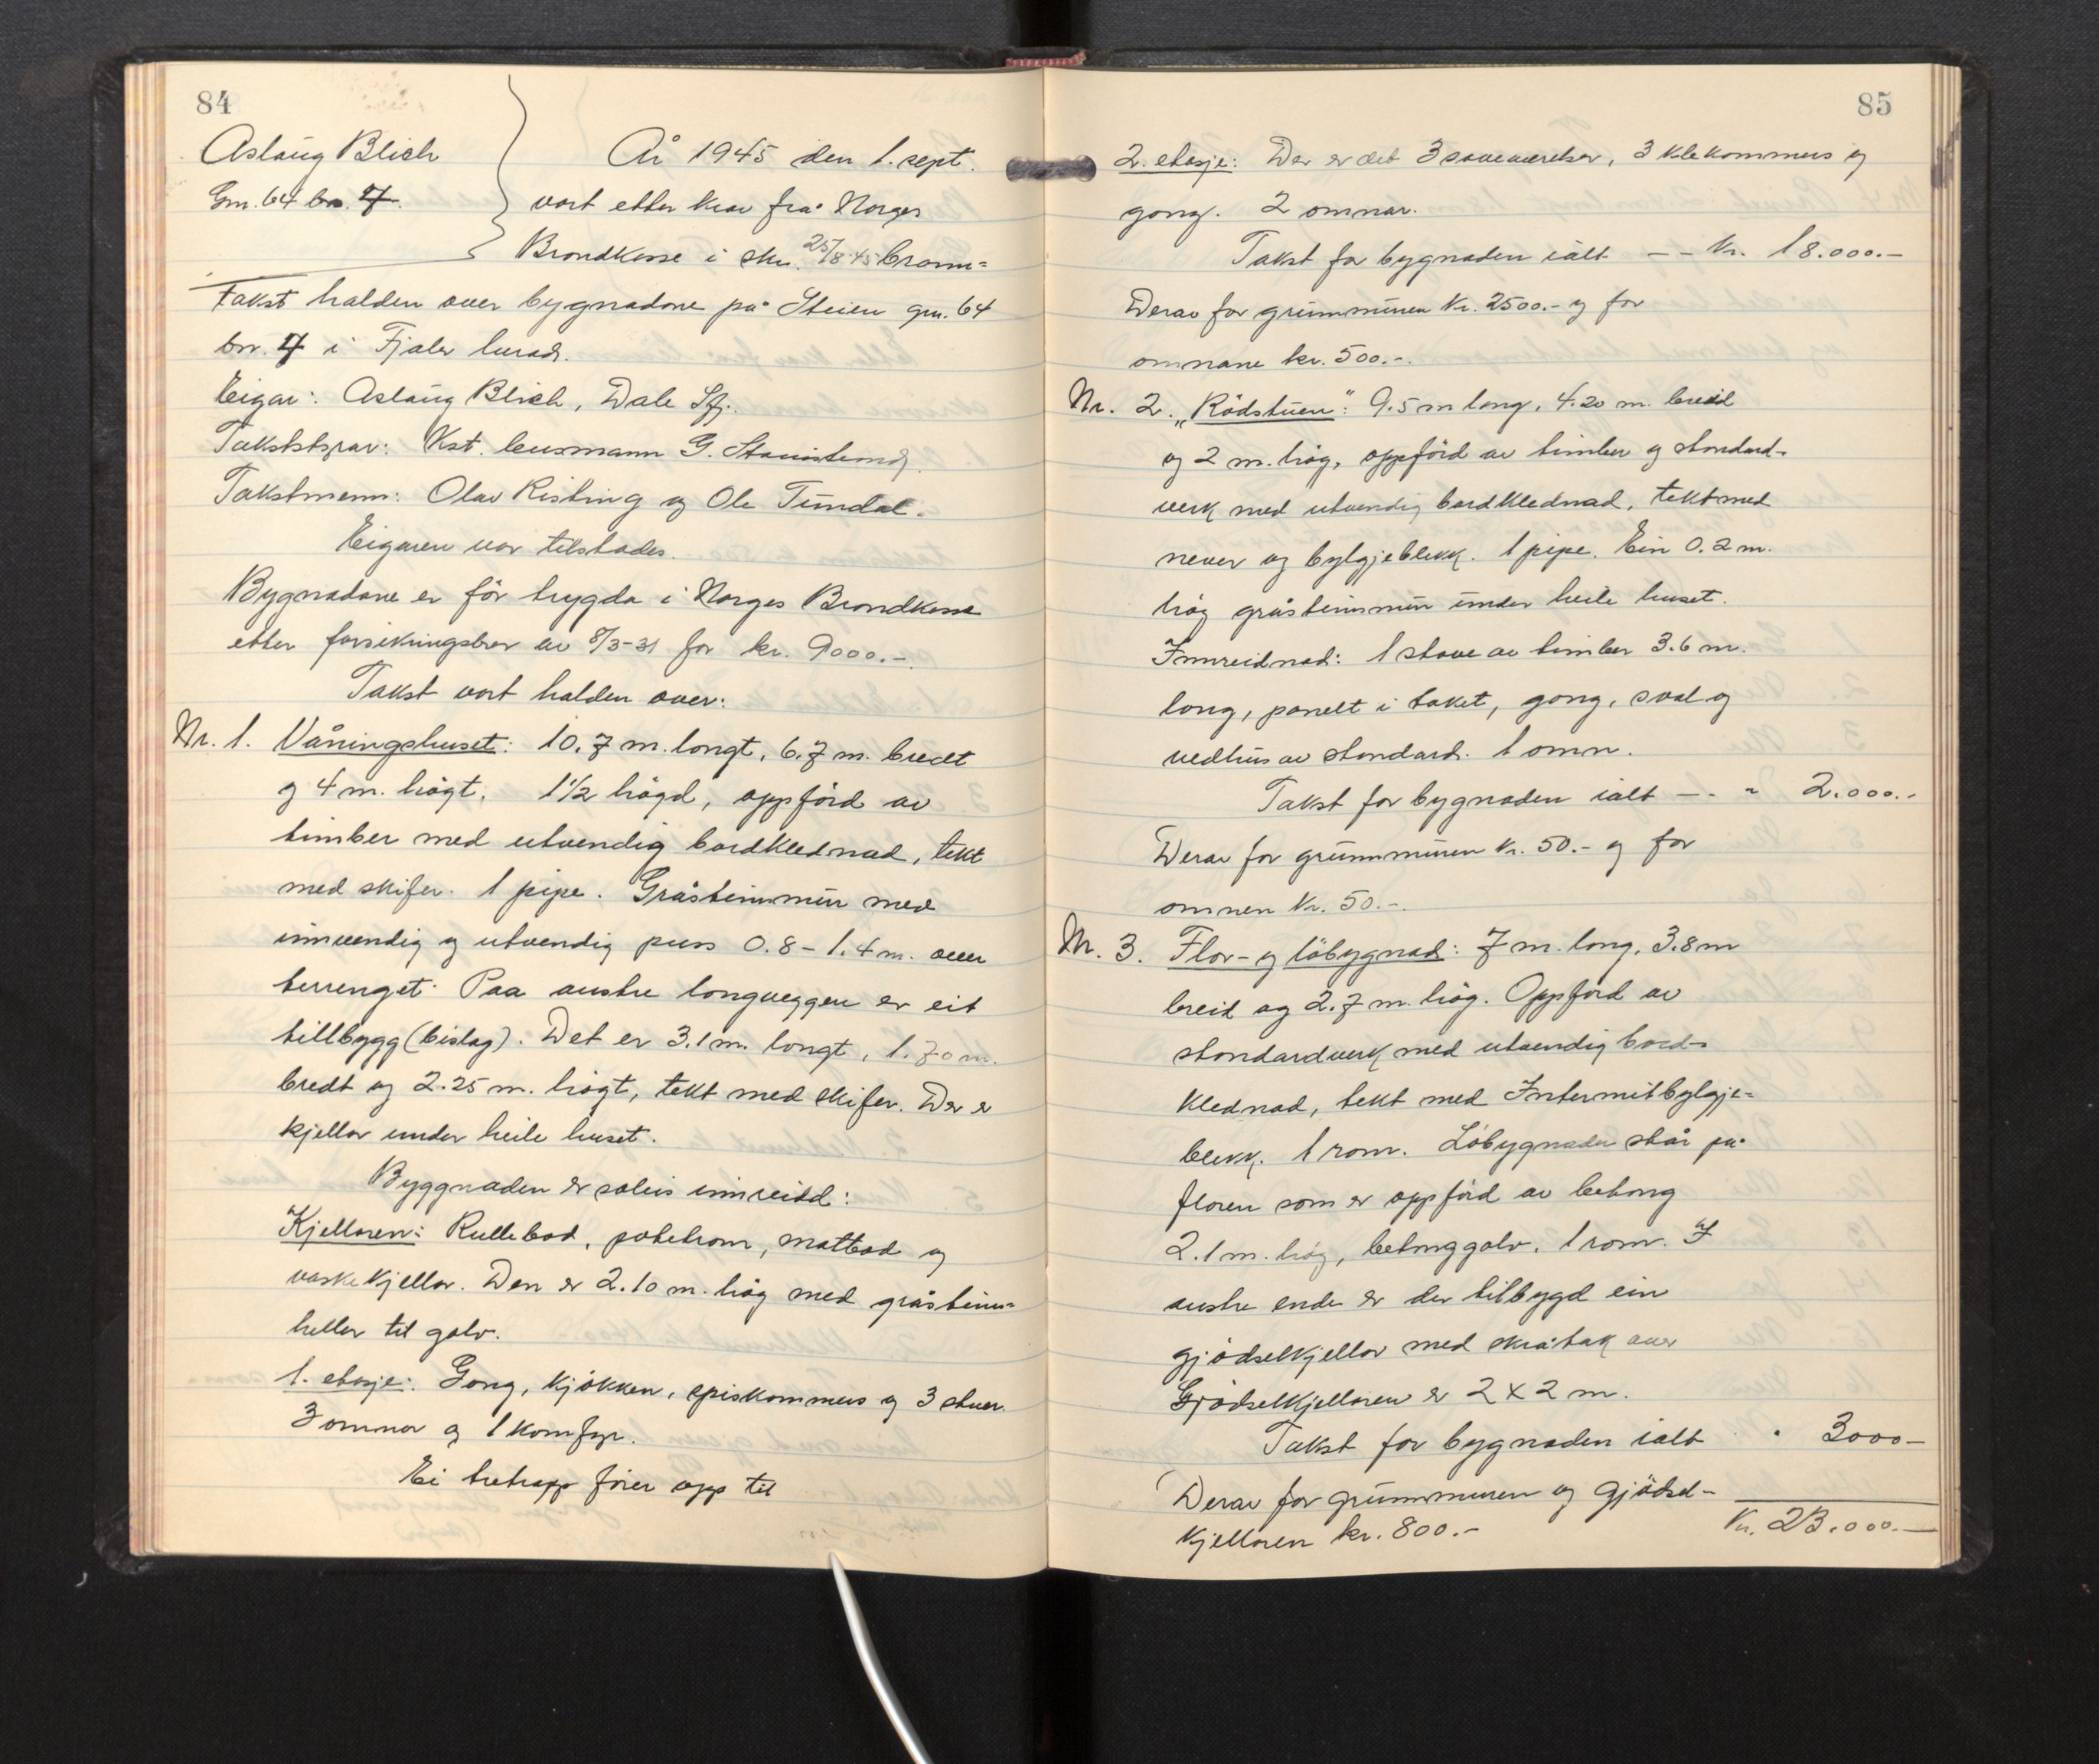 84
Aslaug Blich
Gnr. 64 bn. 7.
År 1945 den 1. sept.
vart etter krav frå Norges
Brandkasse i skr. 25/8-45 brann=
takst halden over bygnadane på Steien gnr. 64
bnr. 7 i Fjaler herad.
Eigar: Aslaug Blich, Dale Sfj.
Takststyrar: Kst. lensmann G.
Takstmenn: Olav Risting og Ole Tundal.
Eigaren var tilstades.
Bygnadane er för trygda i Norges Brandkasse
etter forsikringsbrev av 8/3-31 for kr. 9000.-.
Takst vart halden over:
Nr. 1. Våningshuset: 10.7 m. langt, 6.7 m. bredt
og 4 m. högt. 1½ högd, oppförd av
timber med utvendig bordklednad, tekt
med skifer. 1 pipe. Gråsteinsmur med
innvendig og utvendig puss 0.8 - 1.4 m. over
terrenget. Paa austre langveggen er eit
tillbygg (bislag). Det er 3.1 m. langt, 1.70 m.
bredt og 2.25 m. högt, tekt med skifer. Der er
kjellar under heile huset.
Byggnaden er soleis innreidd:
Kjellaren: Rullebod, potetrom, matbod og
vaskekjellar. Den er 2.10 m. höy med gråsteins=
heller til golv.
1. etasje: Gang, kjökken, spiskammers og 3 stuer.
3 omnar og 1 komfyr.
Ei tretrapp förer opp til
85
2. etasje: Der er det 3 soveværelser, 3 klekammers og
gang. 2 omnar.
Takst for bygnaden ialt -- Kr. 18.000.-
Derav for grunnmuren kr. 2500.- og for
omnane kr. 500.-.
Nr. 2. „Rådstuen": 9.5 m lang, 4.20 m. breid
og 2 m. höy, oppförd av timber og standard-
verk med utvendig bordklednad, tekt med
never og bylgjeblekk. 1 pipe. Ein 0.2 m.
höy gråsteinsmur under heile huset.
Innreidnad: 1 stove av timber 3.6 m.
lang, panelt i taket, gang, sval og
vedhus av standard. 1 omn.
Takst for bygnaden ialt -. " 2.000.-
Derav for grunnmuren kr. 50.- og for
omnen kr. 50.-.
Nr. 3. Flor- og löbygnad: 7 m. lang, 3.8 m
breid og 2.7 m. höy. Oppförd av
standardverk med utvendig bord-
klednad, tekt med Internitbylgje=
blekk. 1 rom. Löbygnaden står på
floren som er oppförd av betong
2.1 m. höy, betonggolv. 1 rom. I
austre ende er der tilbygd ein
gjödselkjellar med skråtak over
Gjödselkjellaren er 2 x 2 m.
Takst for bygnaden ialt " 3000-
Derav for grunnmuren og gjödsel-
kjellaren kr. 800.-
Kr. 23.000.-